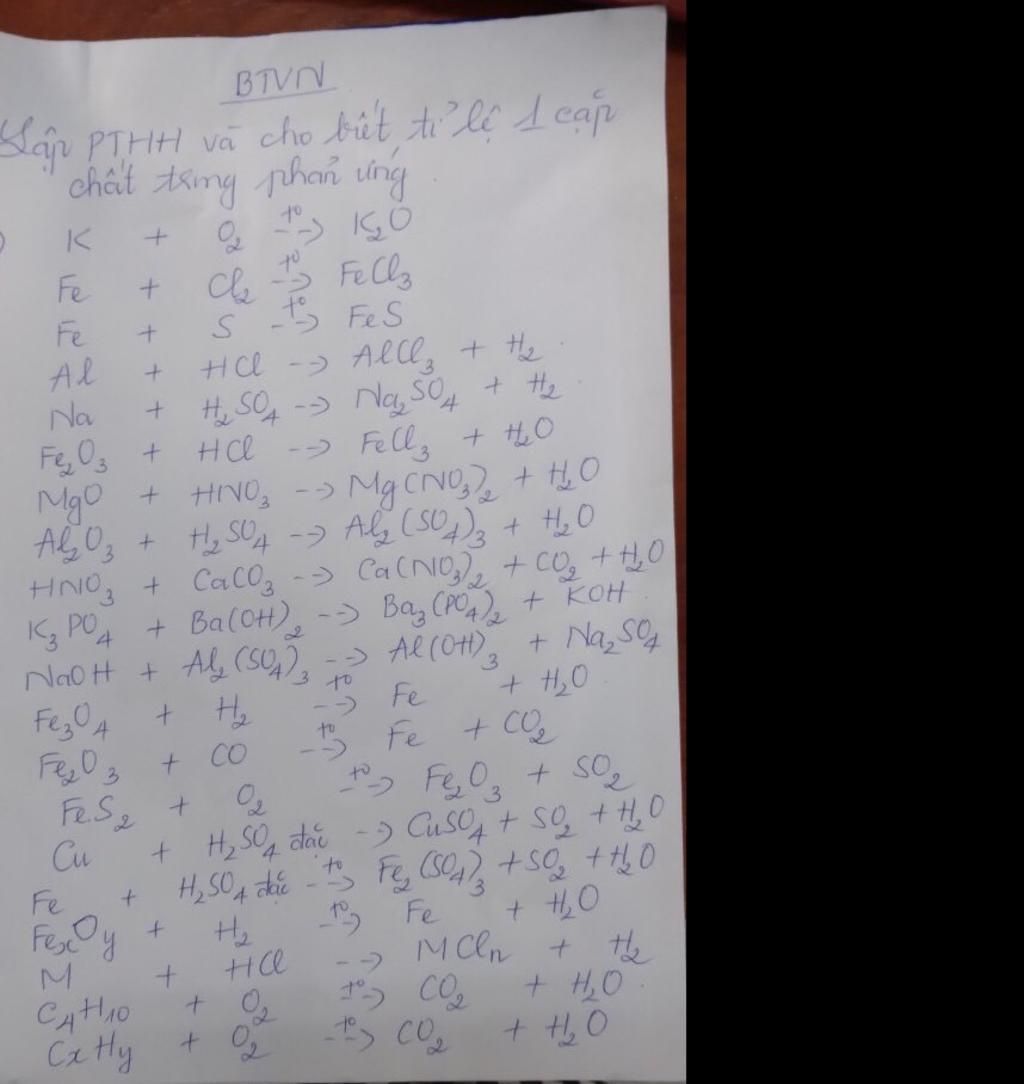 BTVN
Lập PTHH và cho biết tỉ lệ 1 cặp
chất trong phản ứng
K + O₂ --t°--> K₂O
Fe + Cl₂ --t°--> FeCl₃
Fe + S --t°--> FeS
Al + HCl --> AlCl₃ + H₂
Na + H₂SO₄ --> Na₂SO₄ + H₂
Fe₂O₃ + HCl --> FeCl₃ + H₂O
MgO + HNO₃ --> Mg(NO₃)₂ + H₂O
Al₂O₃ + H₂SO₄ --> Al₂(SO₄)₃ + H₂O
HNO₃ + CaCO₃ --> Ca(NO₃)₂ + CO₂ + H₂O
K₃PO₄ + Ba(OH)₂ --> Ba₃(PO₄)₂ + KOH
NaOH + Al₂(SO₄)₃ --> Al(OH)₃ + Na₂SO₄
Fe₃O₄ + H₂ --t°--> Fe + H₂O
Fe₂O₃ + CO --t°--> Fe + CO₂
FeS₂ + O₂ --t°--> Fe₂O₃ + SO₂
Cu + H₂SO₄ đặc --> CuSO₄ + SO₂ + H₂O
Fe + H₂SO₄ đặc --t°--> Fe₂(SO₄)₃ + SO₂ + H₂O
FexOy + H₂ --t°--> Fe + H₂O
M + HCl --> MCln + H₂
C₄H₁₀ + O₂ --t°--> CO₂ + H₂O
CxHy + O₂ --t°--> CO₂ + H₂O